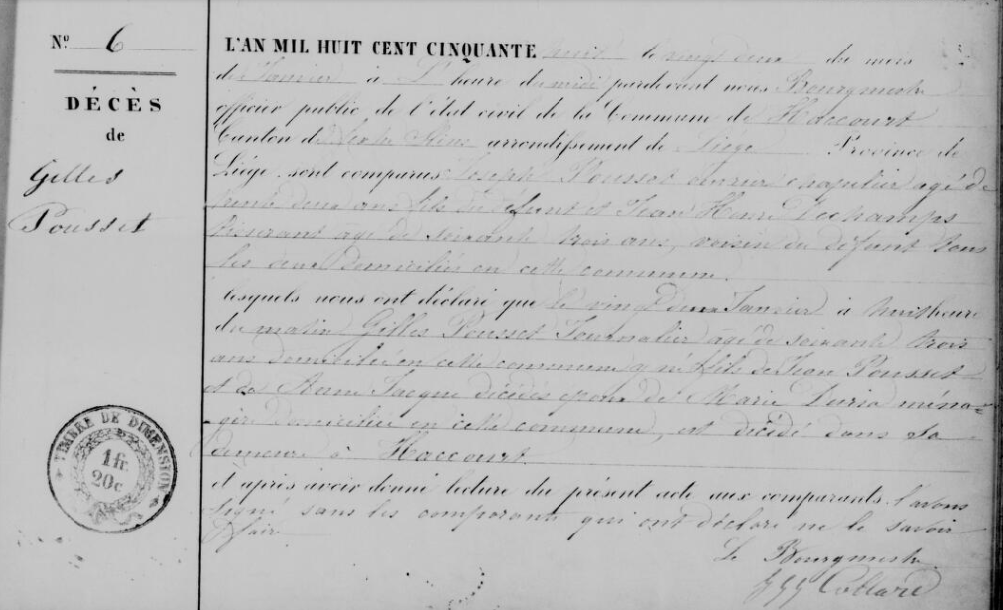 N° 6
DÉCÈS
de
Gilles
Pousset
TIMBRE DE DIMENSION
1 fr.
20 c
L'AN MIL HUIT CENT CINQUANTE huit le vingt deux du mois
de Janvier à L'heure du midi pardevant nous Bourgmestre
officier public de l'état civil de la Commune de Haccourt
Canton de arrondissement de Liége Province de
Liége sont comparus Joseph Pousset ouvrier agé de
trente deux ans fils du défunt et Jean Henri Dechamps
agé de soixante trois ans, voisin du défunt tous
les deux domiciliés en cette commune.
lesquels nous ont déclaré que le vingt deux Janvier à huit heure
du matin Gilles Pousset Journalier agé de soixante trois
ans domicilié en cette commune fils de Jean Pousset
et de Anne Jacque décédés epoux de Marie ména-
gère domiciliée en cette commune, est décédé dans sa
demeure à Haccourt.
et après avoir donné lecture du présent acte aux comparants l'avons
signé sans les comparants qui ont déclaré ne le savoir
faire
Le Bourgmestre
Collard